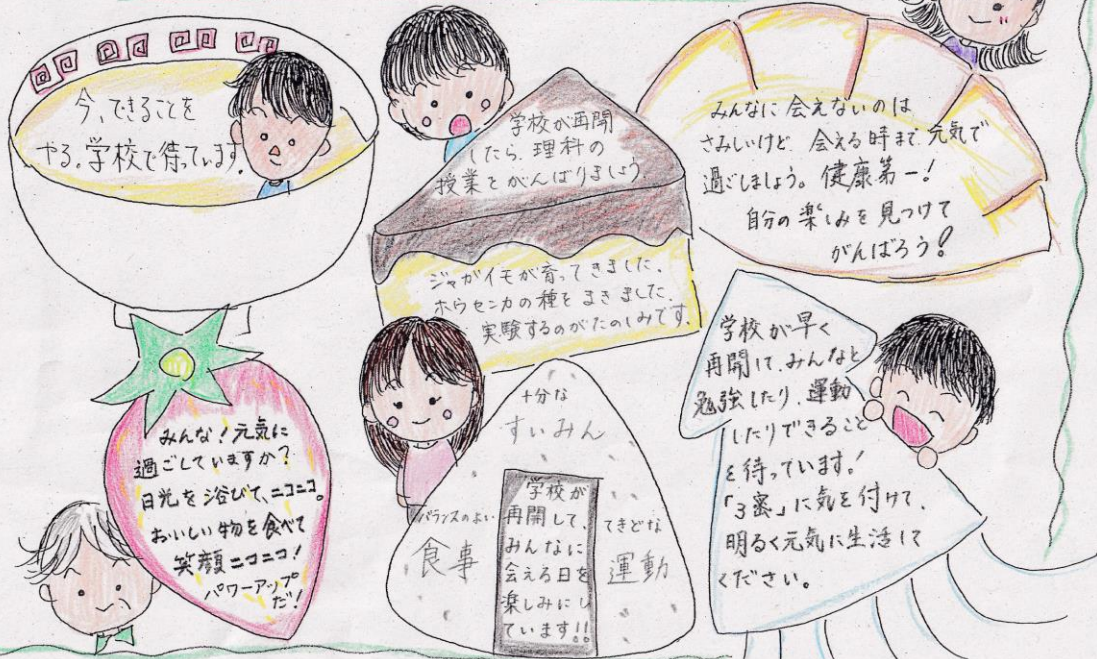 今、できることを
やる。学校で待っています。
学校が再開
したら、理科の
授業をがんばりましょう
ジャガイモが育ってきました。
ホウセンカの種をまきました。
実験するのがたのしみです。
みんなに会えないのは
さみしいけど、会える時まで元気で
過ごしましょう。健康第一!
自分の楽しみを見つけて
がんばろう!
みんな!元気に
過ごしていますか?
日光を浴びて、ニコニコ。
おいしい物を食べて
笑顔ニコニコ!
パワーアップ
だ!
十分な
すいみん
バランスのよい
食事
学校が
再開して、
みんなに
会える日を
楽しみにし
ています!!
てきどな
運動
学校が早く
再開して、みんなと
勉強したり、運動
したりできること
を待っています!
「3密」に気を付けて、
明るく元気に生活して
ください。